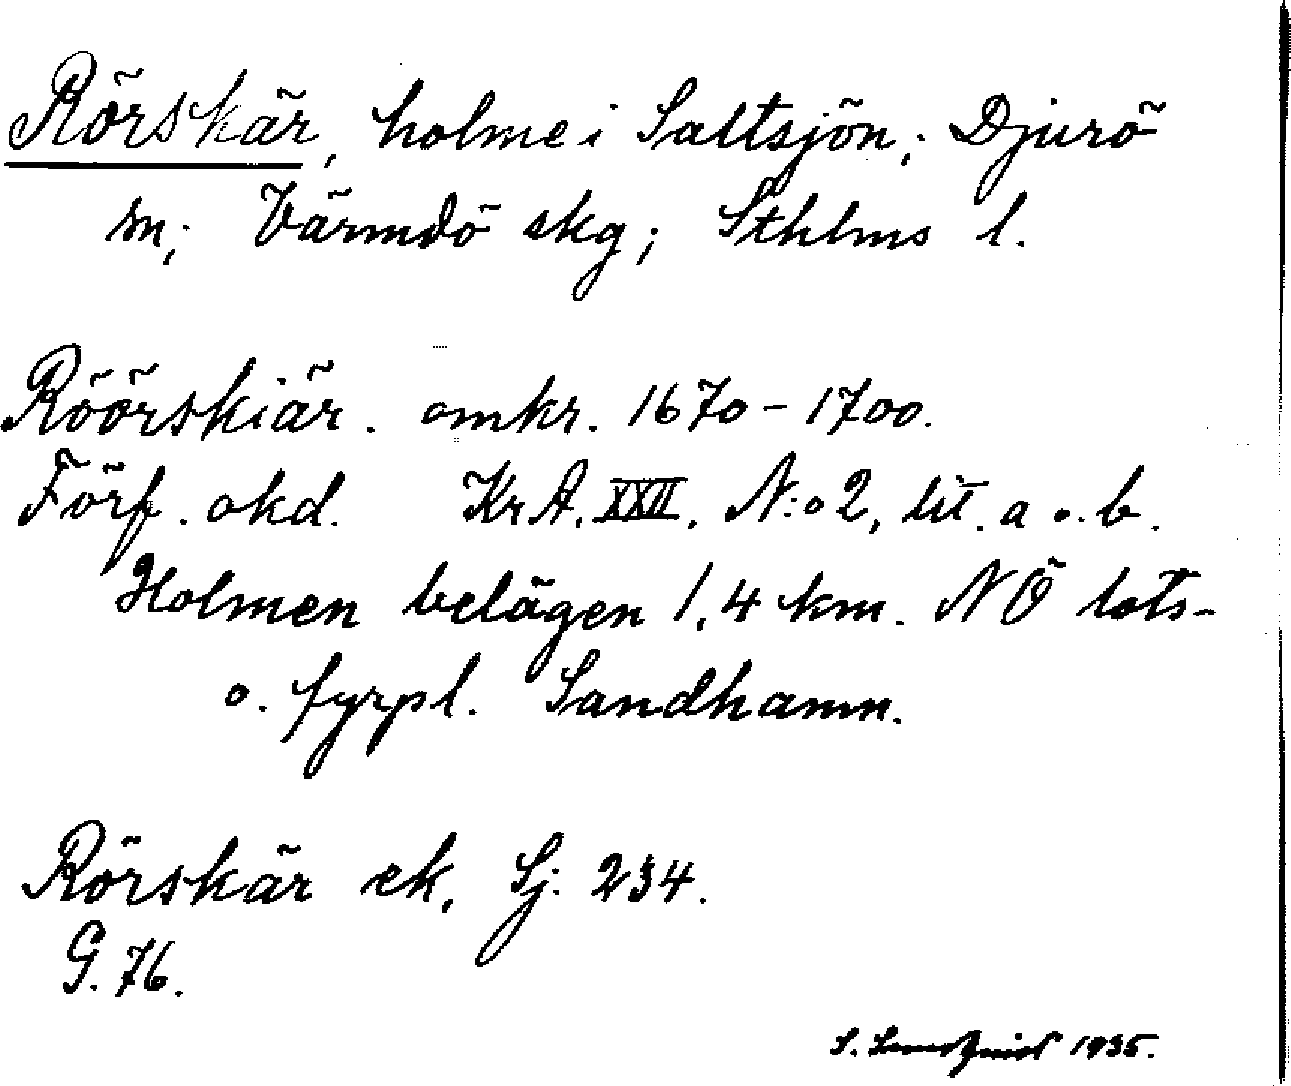 Rörskär, holme i Saltsjön; Djurö
sn; Värmdö skg; Sthlms l.
Röörskiär. omkr. 1670-1700.
Förf. okd. KrA. XXII. N:o 2, lit. a o. b.
Holmen belägen 1,4 km. NÖ lots-
o. fyrpl. Sandhamn.
Rörskär ek, Sj. 234.
G. 76.
S. 1935.